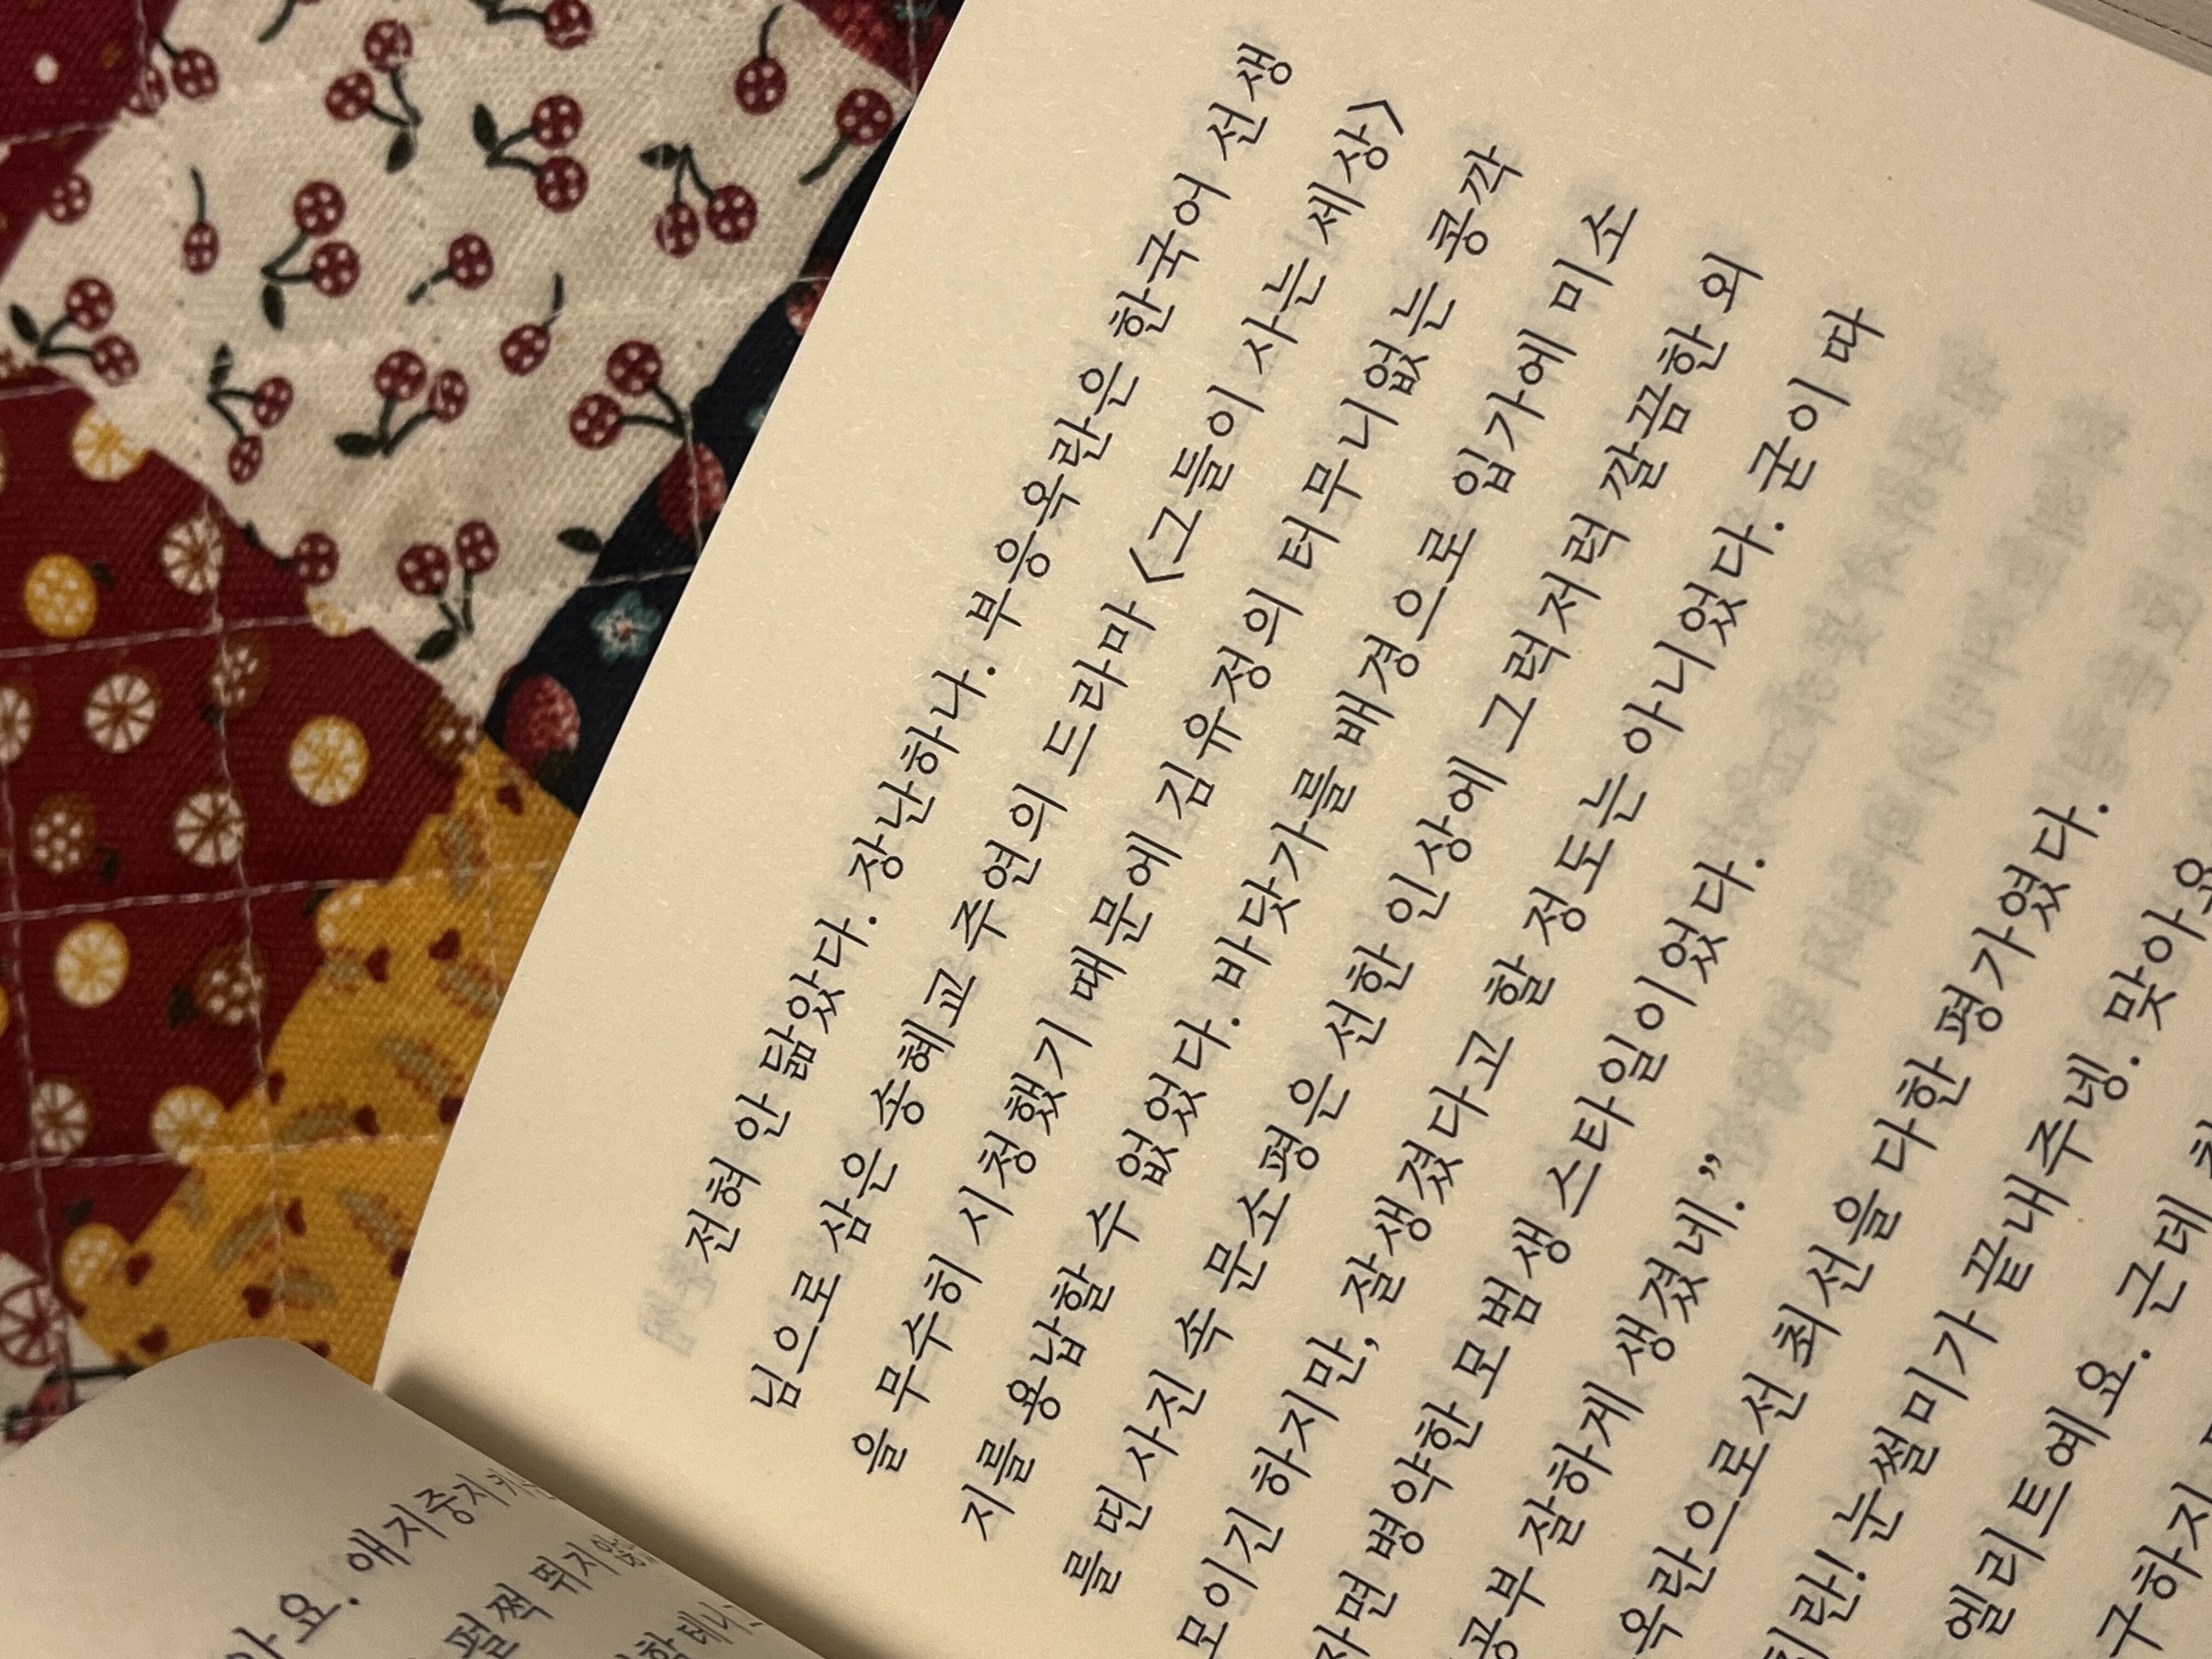 전혀 안 닮았다. 장난하나. 부응옥란은 한국어 선생
님으로 삼은 송혜교 주연의 드라마 〈그들이 사는 세상〉
을 무수히 시청했기 때문에 김유정의 터무니없는 콩깍
지를 용납할 수 없었다. 바닷가를 배경으로 입가에 미소
를 띤 사진 속 문소평은 선한 인상에 그럭저럭 깔끔한 외
모이긴 하지만, 잘생겼다고 할 정도는 아니었다. 굳이 따
자면 병약한 모범생 스타일이었다.
공부 잘하게 생겼네.”
옥란으로선 최선을 다한 평가였다.
희란! 눈썰미가 끝내주넹. 맞아요
엘리트예요. 근데
구하지
아요. 애지중지
펄쩍 뛰지 않
테니